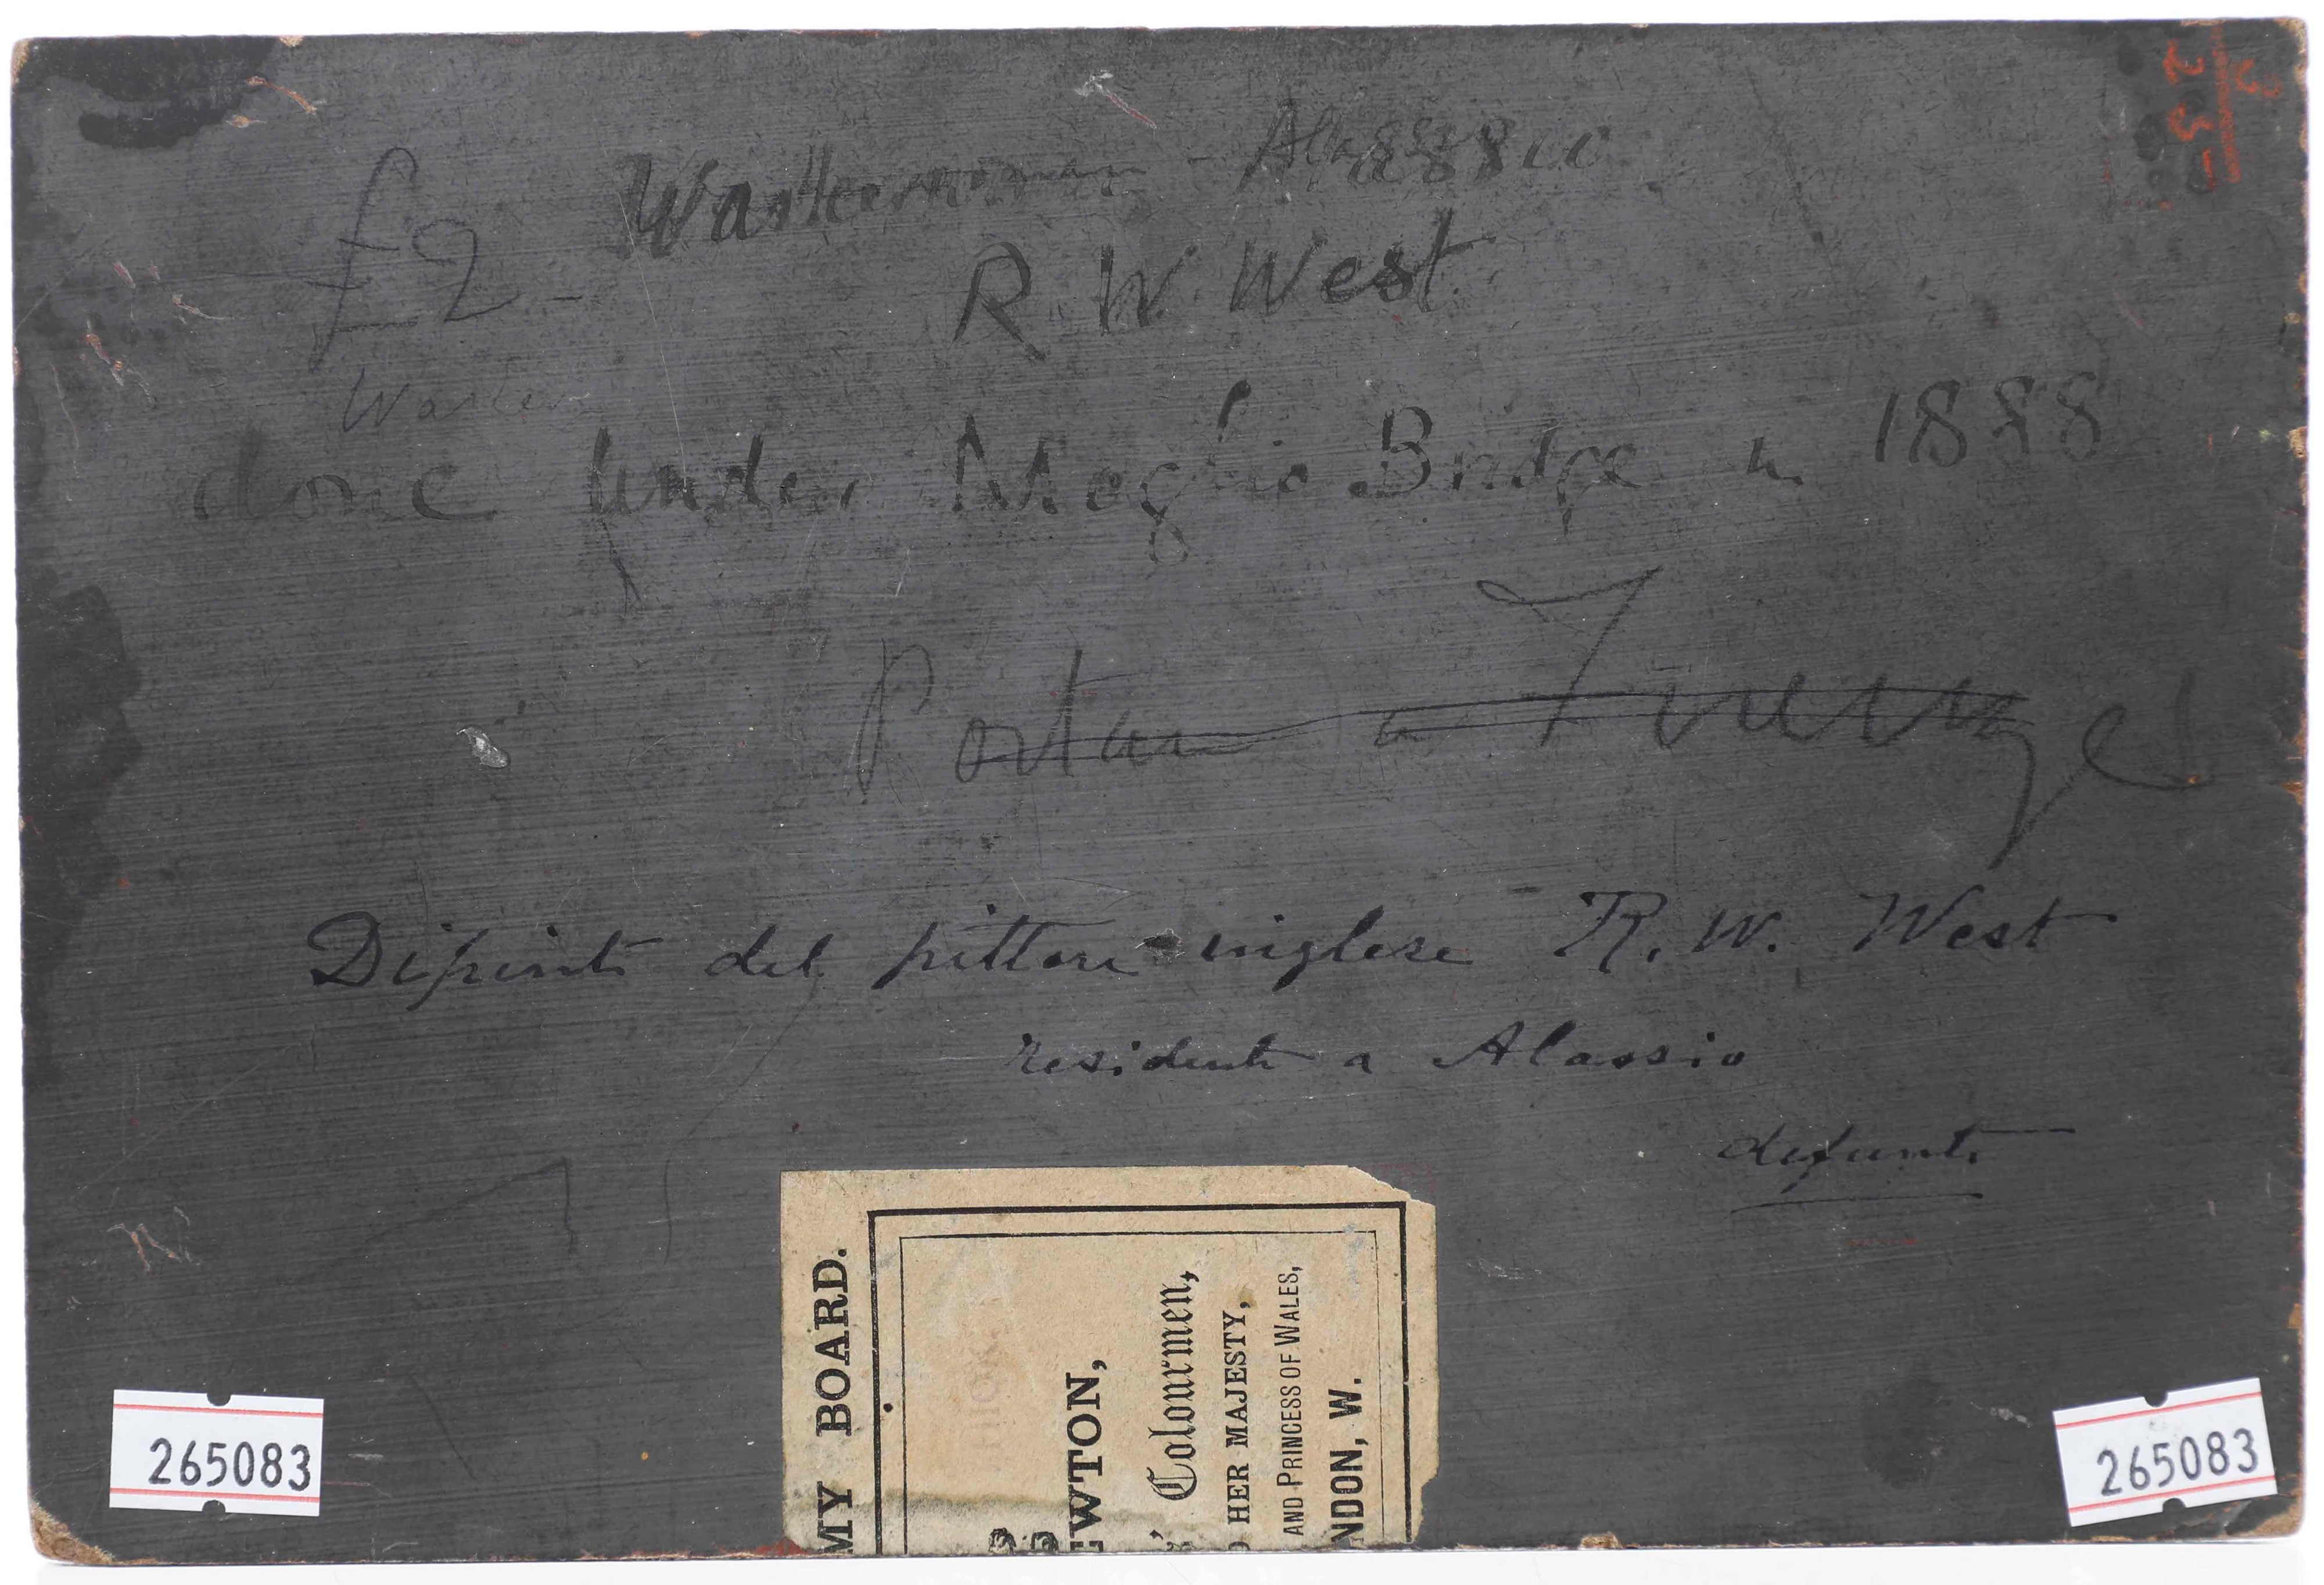 £2 -
Washerwoman - Alassio
R. W. West
done under Moglio Bridge in 1888
Dipinto del pittore inglese R. W. West
residente a Alassio
defunto
MY BOARD.
EWTON,
Colourmen,
HER MAJESTY,
AND PRINCESS OF WALES,
NDON, W.
265083
265083